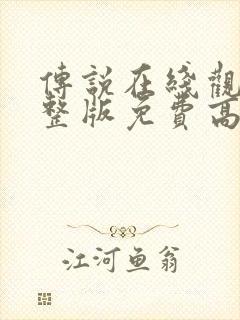 傳說在綫觀
整版免費高
江河鱼翁